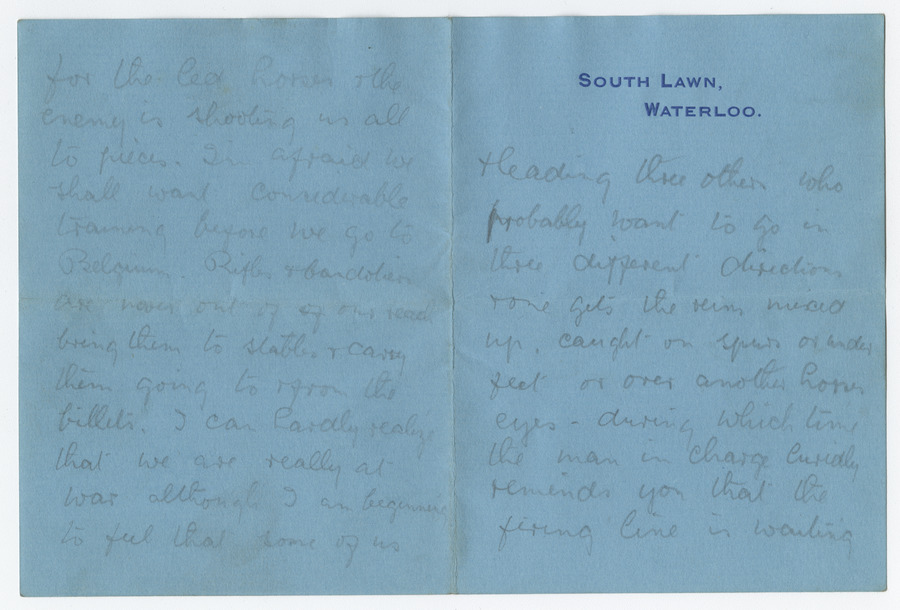 for the led horses & the
enemy is shooting us all
to pieces. I'm afraid we
shall want considerable
training before we go to
Belgium. Rifles & bandoliers
are never out of of our reach
bring them to stables & carry
them going to & from the
billets. I can hardly realize
that we are really at
war although I am beginning
to feel that some of us
SOUTH LAWN,
WATERLOO.
& leading three others who
probably want to go in
three different directions
& one gets the reins mixed
up, caught on spurs or under
feet or over another horses
eyes - during which time
the man in charge luridly
reminds you that the
firing line is waiting